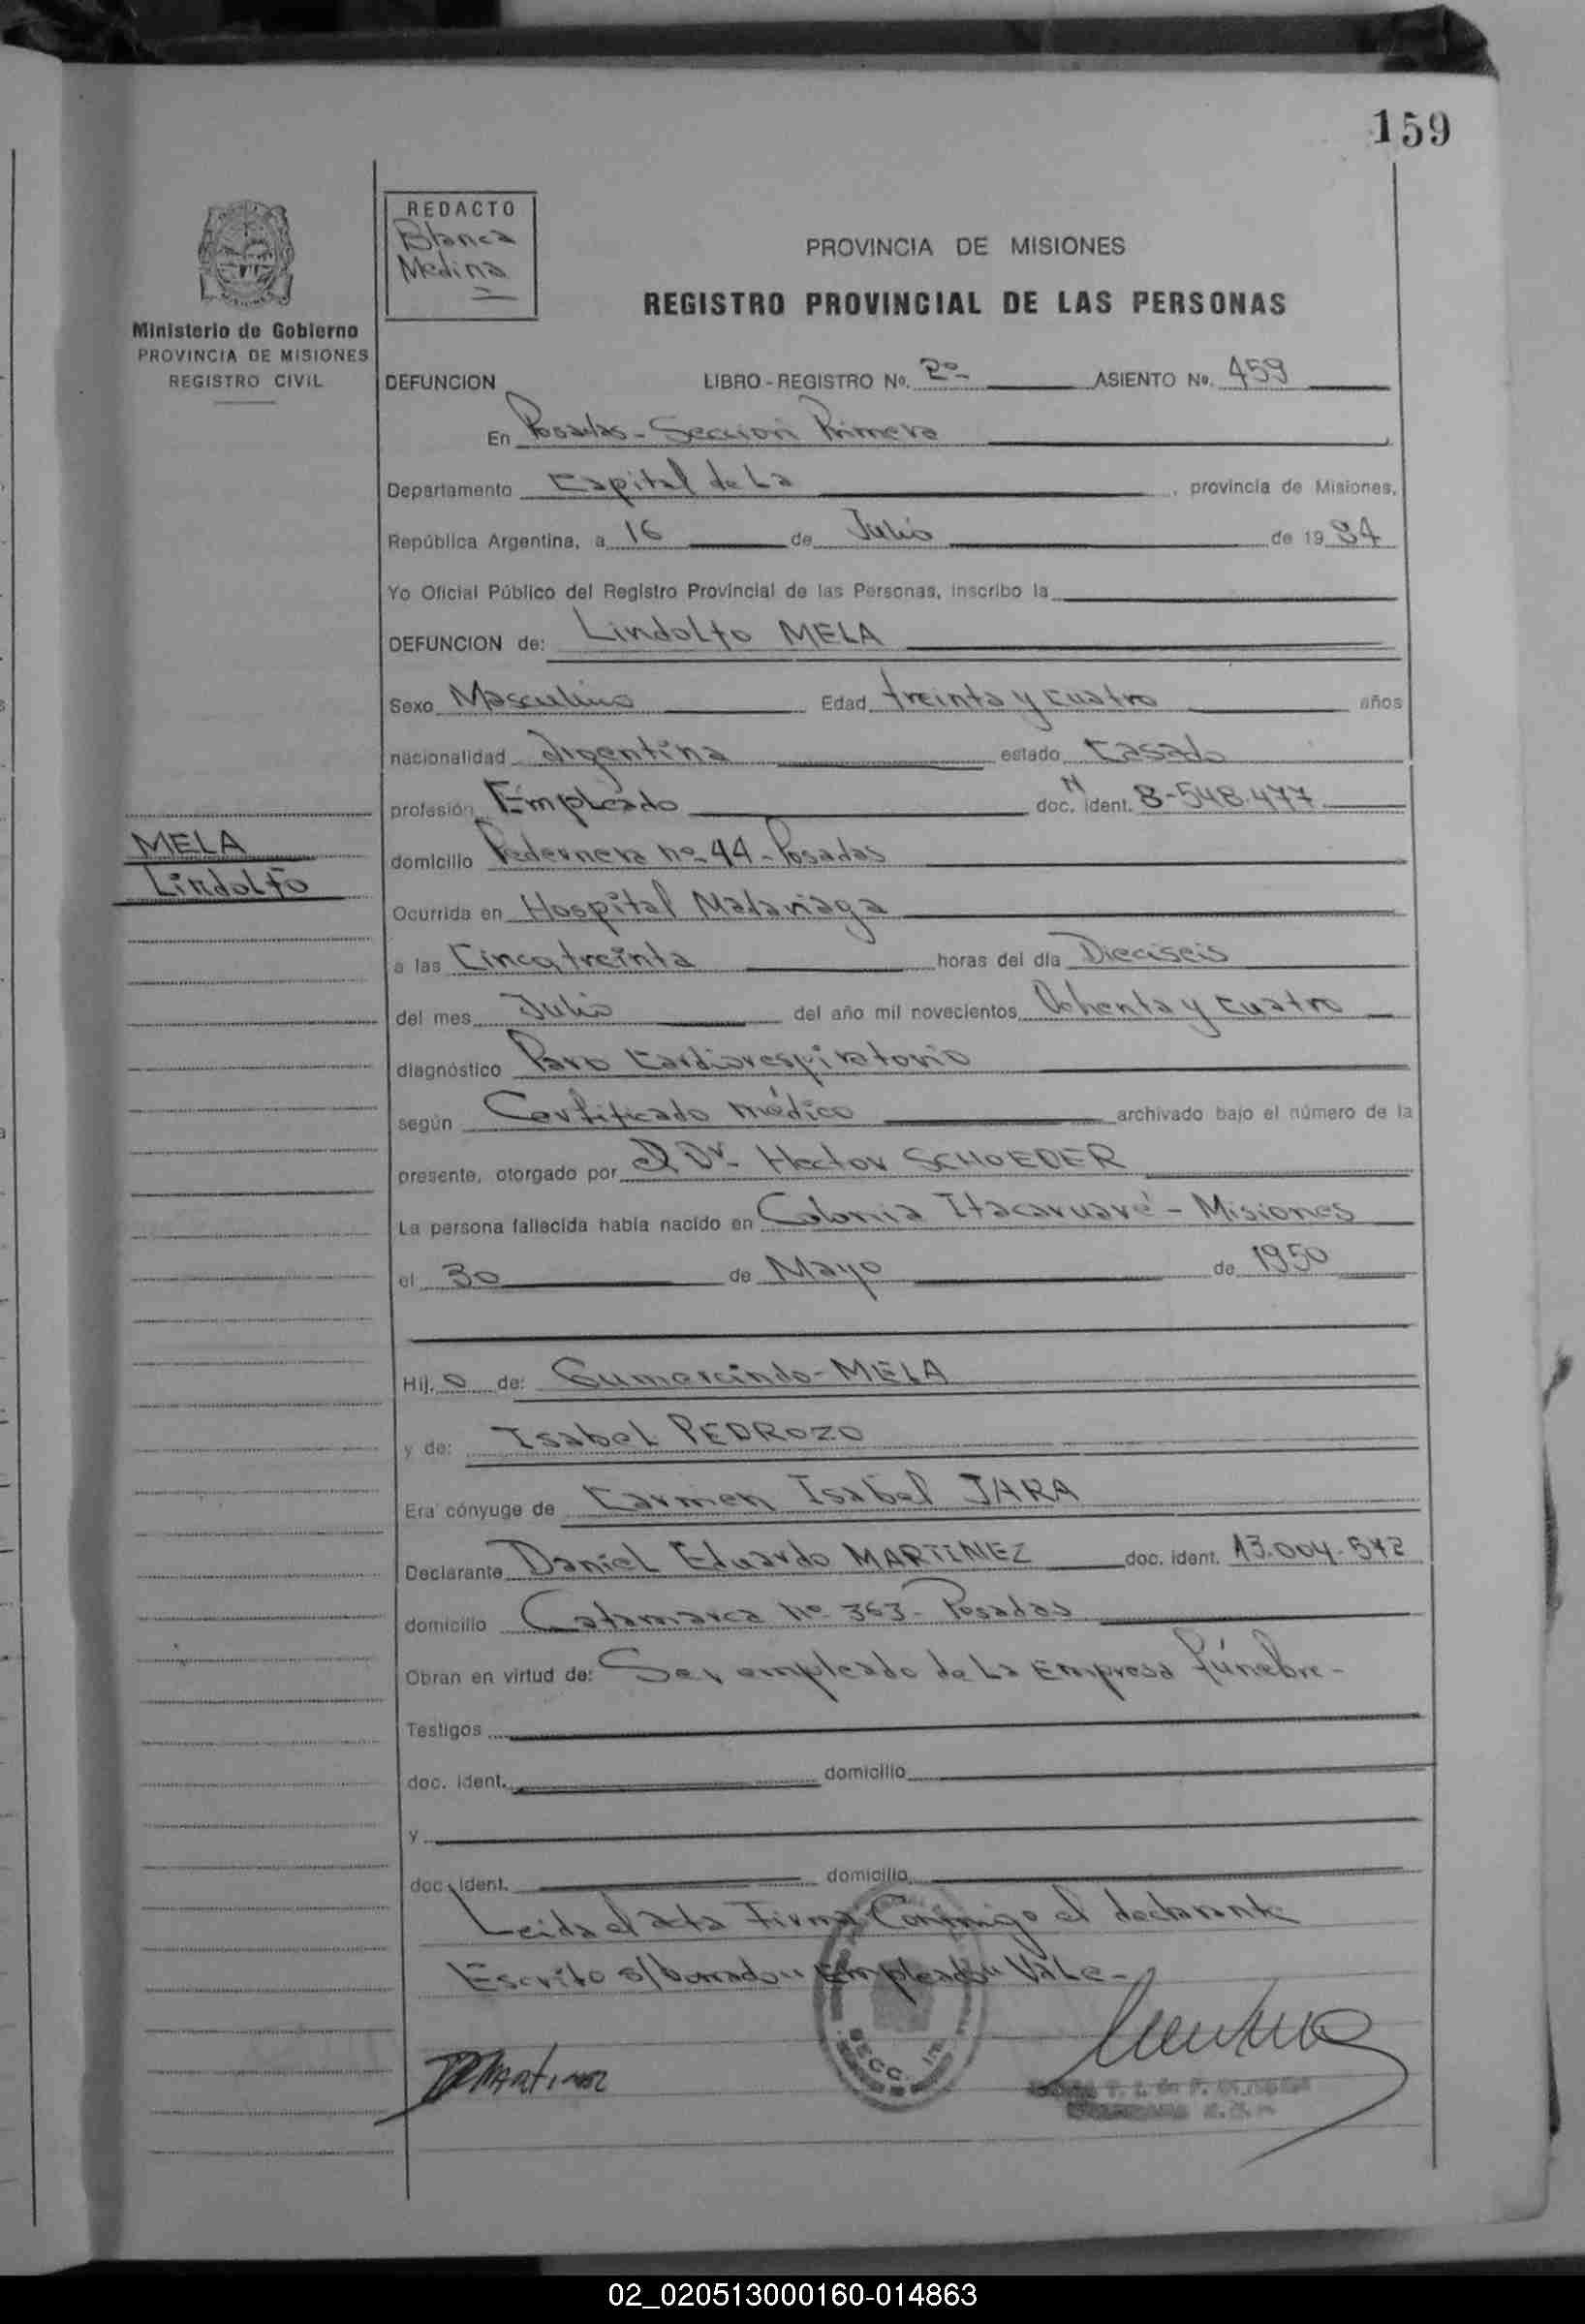 159
REDACTO
Blanca
Medina
Ministerio de Gobierno
PROVINCIA DE MISIONES
REGISTRO CIVIL
PROVINCIA DE MISIONES
REGISTRO PROVINCIAL DE LAS PERSONAS
DEFUNCION LIBRO - REGISTRO Nº. 2º- ASIENTO Nº. 459
En Posadas - Seccion Primera
Departamento Capital de La , provincia de Misiones,
República Argentina, a 16 de Julio de 19 84
Yo Oficial Público del Registro Provincial de las Personas, inscribo la
DEFUNCION de: Lindolfo MELA
Sexo Masculino Edad treinta y cuatro años
nacionalidad Argentina estado Casado
profesión Empleado doc. M ident. 8-548.477
MELA
Lindolfo
domicilio Pedernera nº 44 - Posadas
Ocurrida en Hospital Madariaga
a las Cinco, treinta horas del día Dieciseis
del mes Julio del año mil novecientos Ochenta y cuatro
diagnóstico Paro Cardiorespiratorio
según Certificado médico archivado bajo el número de la
presente, otorgado por el Dr. Hector SCHOEDER
La persona fallecida había nacido en Colonia Itacaruaré - Misiones
el 30 de Mayo de 1950
Hij. o de: Gumercindo - MELA
y de: Isabel PEDROZO
Era cónyuge de Carmen Isabel JARA
Declarante Daniel Eduardo MARTINEZ doc. ident. 13.004.572
domicilio Catamarca nº 363 - Posadas
Obran en virtud de: Ser empleado de La Empresa fúnebre -
Testigos
doc. ident. domicilio
y
doc. ident. domicilio
Leida el acta Firma Conmigo el declarante
Escrito s/borrado "Empleado" Vale -
SECC. 1ra.
D MARTINEZ
02_020513000160-014863